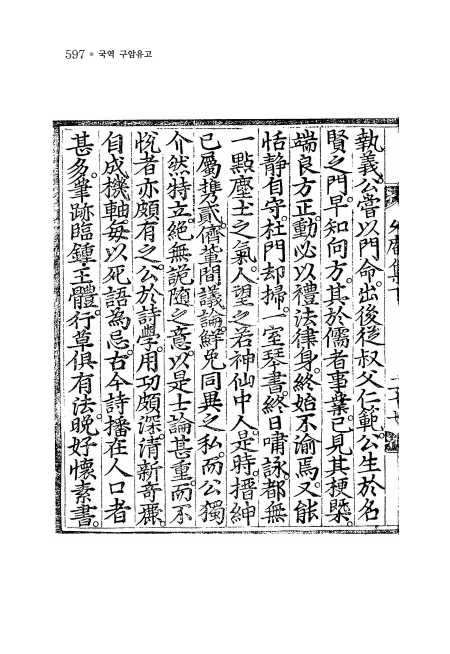 597 ● 국역 구암유고
執義公嘗以門命出後從叔父仁範公生於名
賢之門早知向方其於儒者事業已見其梗槩
端良方正動必以禮法律身終始不渝焉又能
恬静自守杜門却掃一室琴書終日嘯詠都無
一點塵土之氣人望之若神仙中人是時搢紳
已屬携貳儕輩間議論鮮免同異之私而公獨
介然特立絕無詭随之意以是士論甚重而不
悅者亦頗有之公於詩學用功頗深清新奇麗
自成機軸每以死語為忌古今詩播在人口者
甚多筆跡臨鍾王體行草俱有法晩好懷素書